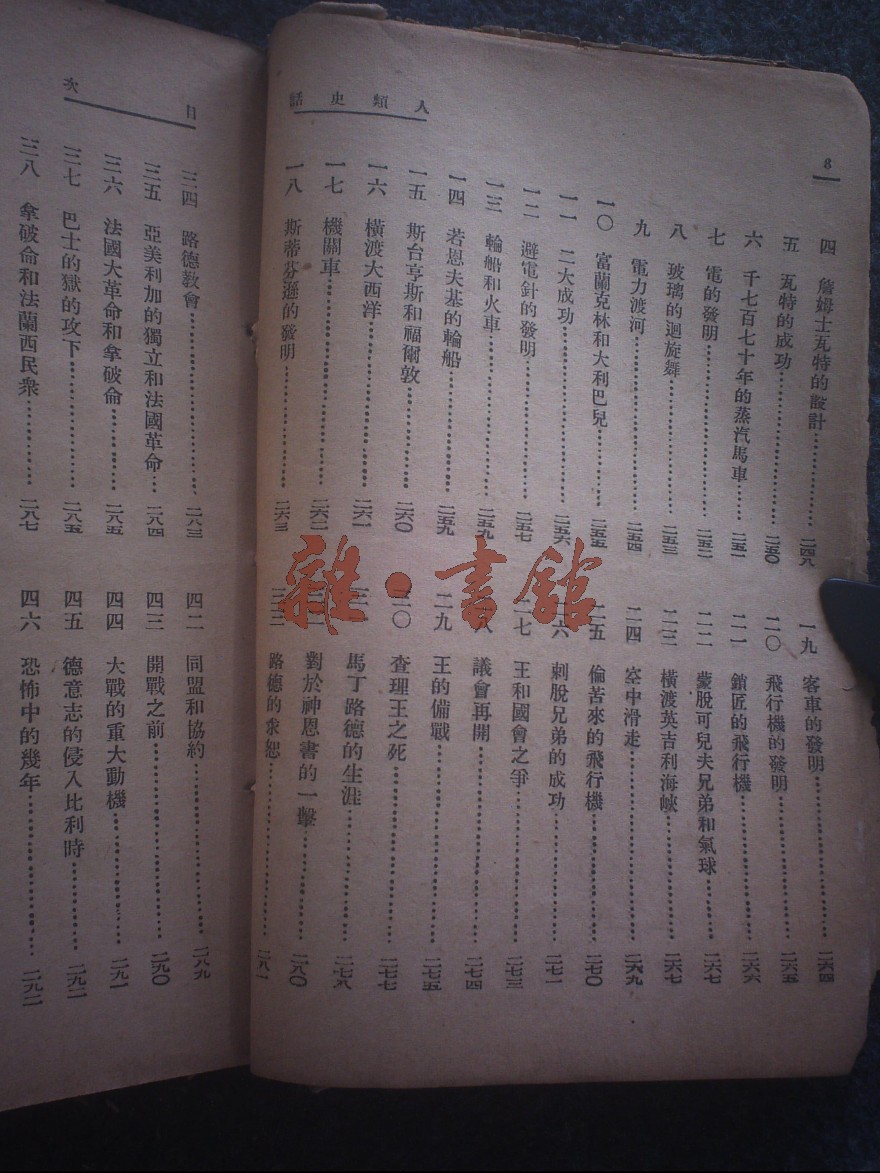 人類史話
8
四 詹姆士瓦特的設計……………二四八
五 瓦特的成功……………二五〇
六 千七百七十年的蒸汽馬車……………二五一
七 電的發明……………二五二
八 玻璃的迴旋舞……………二五三
九 電力渡河……………二五四
一〇 富蘭克林和大利巴兒……………二五五
一一 二大成功……………二五六
一二 避電針的發明……………二五七
一三 輪船和火車……………二五九
一四 若恩夫基的輪船……………二五九
一五 斯台亨斯和福爾敦……………二六〇
一六 橫渡大西洋……………二六一
一七 機關車……………二六二
一八 斯蒂芬遜的發明……………二六三
一九 客車的發明……………二六四
二〇 飛行機的發明……………二六五
二一 鎖匠的飛行機……………二六六
二二 蒙脫可兒夫兄弟和氣球……………二六七
二三 橫渡英吉利海峽……………二六七
二四 空中滑走……………二六九
二五 倫苦來的飛行機……………二七〇
二六 刺脫兄弟的成功……………二七一
二七 王和國會之爭……………二七三
二八 議會再開……………二七四
二九 王的備戰……………二七五
三〇 查理王之死……………二七七
三一 馬丁路德的生涯……………二七八
三二 對於神恩書的一擊……………二八〇
三三 路德的求恕……………二八一
目次
三四 路德教會……………二八三
三五 亞美利加的獨立和法國革命…二八四
三六 法國大革命和拿破侖……………二八五
三七 巴士的獄的攻下……………二八五
三八 拿破侖和法蘭西民衆……………二八七
四二 同盟和協約……………二八九
四三 開戰之前……………二九〇
四四 大戰的重大動機……………二九一
四五 德意志的侵入比利時……………二九二
四六 恐怖中的幾年……………二九二
雜·書館